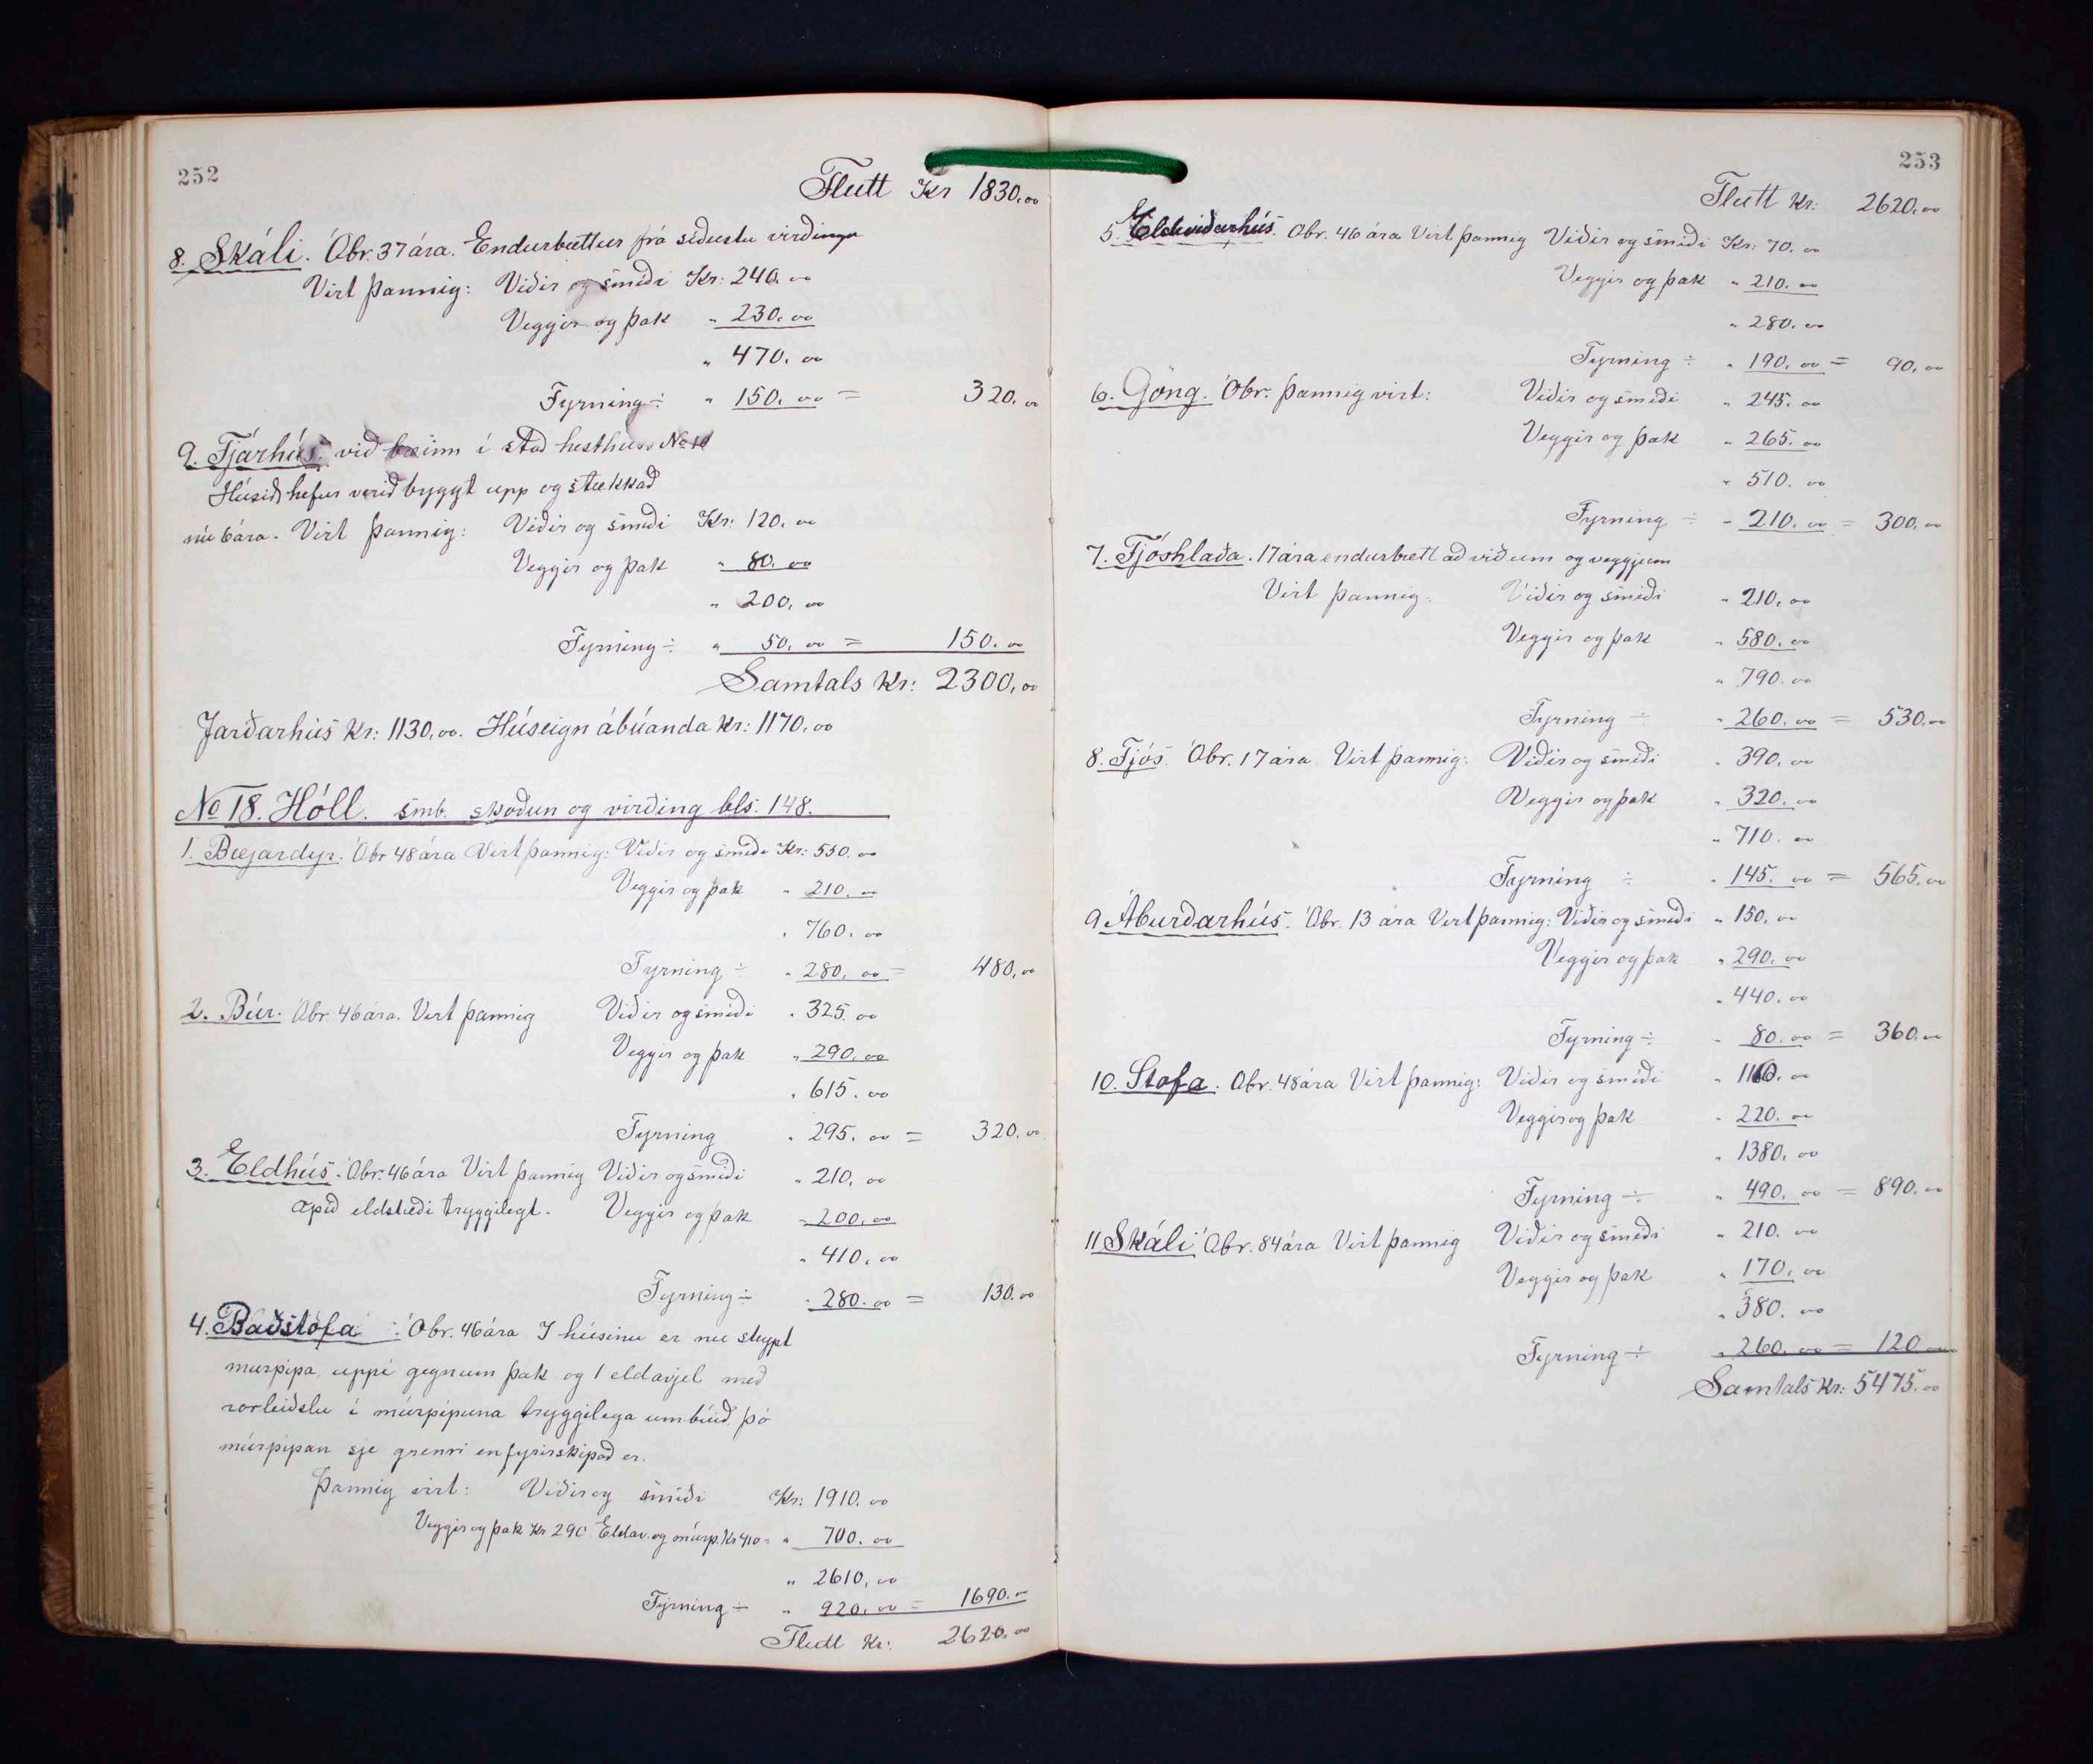 252
Flutt Kr 1830,00
8. Skáli. Óbr. 37 ára. Endurbættur frá síðustu virðingu
Virt þannig: Viðir og smíði Kr: 240. 00
Veggir og þak " 230. 00
" 470. 00
Fyrning ÷ " 150. 00 = 320. 00
9. Fjárhús. við bæinn í stað hesthúss No 10
Húsið hefur verið byggt upp og stækkað
nú 6 ára. Virt þannig: Viðir og smíði Kr: 120. 00
Veggir og þak " 80. 00
" 200. 00
Fyrning ÷ " 50. 00 = 150. 00
Samtals Kr: 2300,00
Jarðarhús Kr: 1130,00. Húseign ábúanda Kr: 1170,00
No 18. Hóll. smb. skoðun og virðing bls. 148.
1. Bæjardyr. Óbr 48 ára Virt þannig: Viðir og smíði Kr: 550. 00
Veggir og þak " 210. 00
" 760. 00
Fyrning ÷ " 280. 00 = 480,00
2. Búr. Óbr 46 ára. Virt þannig Viðir og smíði " 325. 00
Veggir og þak " 290. 00
" 615. 00
Fyrning " 295. 00 = 320. 00
3. Eldhús. Óbr. 46 ára Virt þannig Viðir og smíði " 210. 00
opið eldstæði tryggilegt. Veggir og þak " 200. 00
" 410. 00
Fyrning ÷ " 280. 00 = 130. 00
4. Baðstofa : Óbr. 46 ára I húsinu er nu steypt
murpípa, uppí gegnum þak og 1 eldavjel með
rorleiðslu í múrpípuna tryggilega umbúið, þó
múrpípan sje grenri en fyrirskipað er.
Þannig virt: Viðir og smíði Kr: 1910. 00
Veggir og þak Kr 290 Eldav. og múrp. Kr 410 = " 700. 00
" 2610, 00
Fyrning ÷ " 920. 00 = 1690. 00
Flutt Kr: 2620. 00
253
Flutt Kr: 2620,00
5. Eldiviðarhús. Óbr. 46 ára Virt þannig Viðir og smíði Kr: 70. 00
Veggir og þak " 210. 00
" 280. 00
Fyrning ÷ " 190. 00 = 90. 00
6. Göng. Óbr. Þannig virt: Viðir og smíði " 245. 00
Veggir og þak " 265. 00
" 510. 00
Fyrning ÷ " 210. 00 = 300. 00
7. Fjóshlaða. 17 ára endurbætt að viðum og veggjum
Virt þannig: Viðir og smíði " 210. 00
Veggir og þak " 580. 00
" 790. 00
Fyrning ÷ " 260. 00 = 530. 00
8. Fjós. Óbr. 17 ára Virt þannig: Viðir og smíði " 390. 00
Veggir og þak " 320. 00
" 710. 00
Fyrning ÷ " 145. 00 = 565. 00
9 Áburðarhús. Óbr. 13 ára Virt þannig: Viðir og smíði " 150. 00
Veggir og þak " 290. 00
" 440. 00
Fyrning ÷ " 80. 00 = 360. 00
10. Stofa. Obr. 48 ára Virt þannig: Viðir og smíði " 1160. 00
Veggir og þak " 220. 00
" 1380. 00
Fyrning ÷ " 490. 00 = 890. 00
11 Skáli Obr. 84 ára Virt þannig Viðir og smíði " 210. 00
Veggir og þak " 170. 00
" 380. 00
Fyrning ÷ " 260. 00 = 120 00
Samtals Kr: 5475. 00